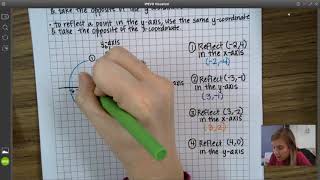 & take the opposite of the
• to reflect a point in the y-axis, use the same y-coordinate
& take the opposite of the x-coordinate.
y-axis
① Reflect (-2,4)
in the x-axis
(-2,-4)
② Reflect (-3,-1)
in the y-axis
(3,-1)
③ Reflect (3,-2)
in the x-axis
(3,2)
④ Reflect (4,0)
in the y-axis